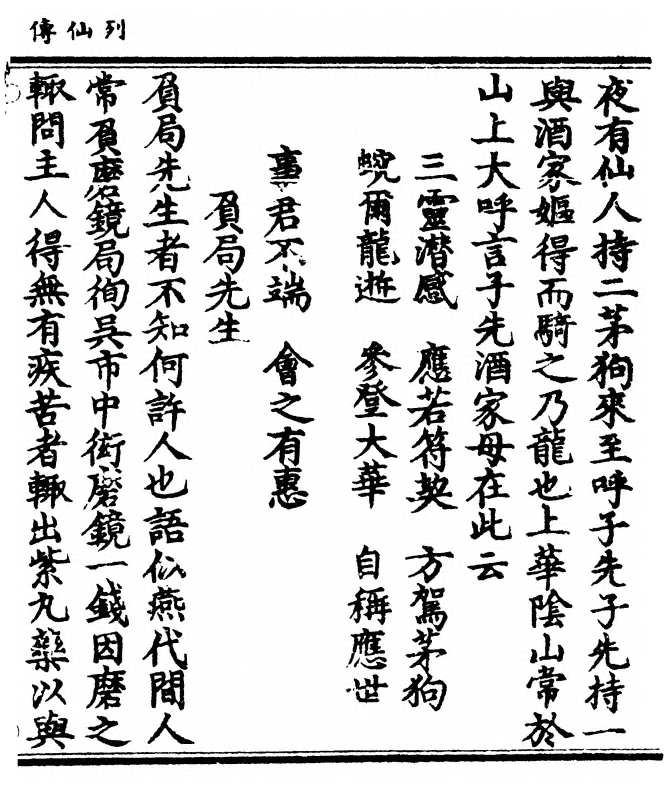 列仙傳
夜有仙人持二茅狗來至呼子先子先持一
與酒家嫗得而騎之乃龍也上華陰山常於
山上大呼言子先酒家母在此云
三靈潜感 應若符契 方駕茅狗
蜿爾龍逝 參登大華 自稱應世
事君不端 會之有惠
負局先生
負局先生者不知何許人也語似燕代間人
常負磨鏡局徇吳市中衒磨鏡一錢因磨之
輙問主人得無有疾苦者輙出紫丸藥以與